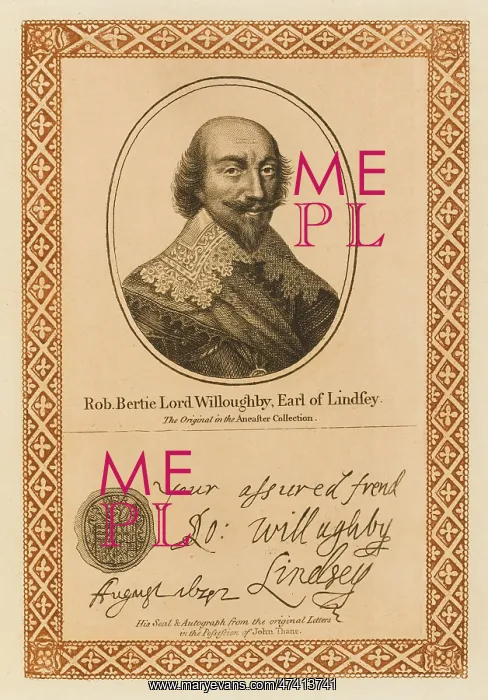 ME
PL
Rob. Bertie Lord Willoughby, Earl of Lindſey.
The Original in the Ancaſter Collection.
ME
PL
your aſsured frend
Ro: Willughby
Lindsey
August 1642
His Seal & Autograph from the original Letters
in the Poſseſsion of John Thane.
www.maryevans.com/47413741